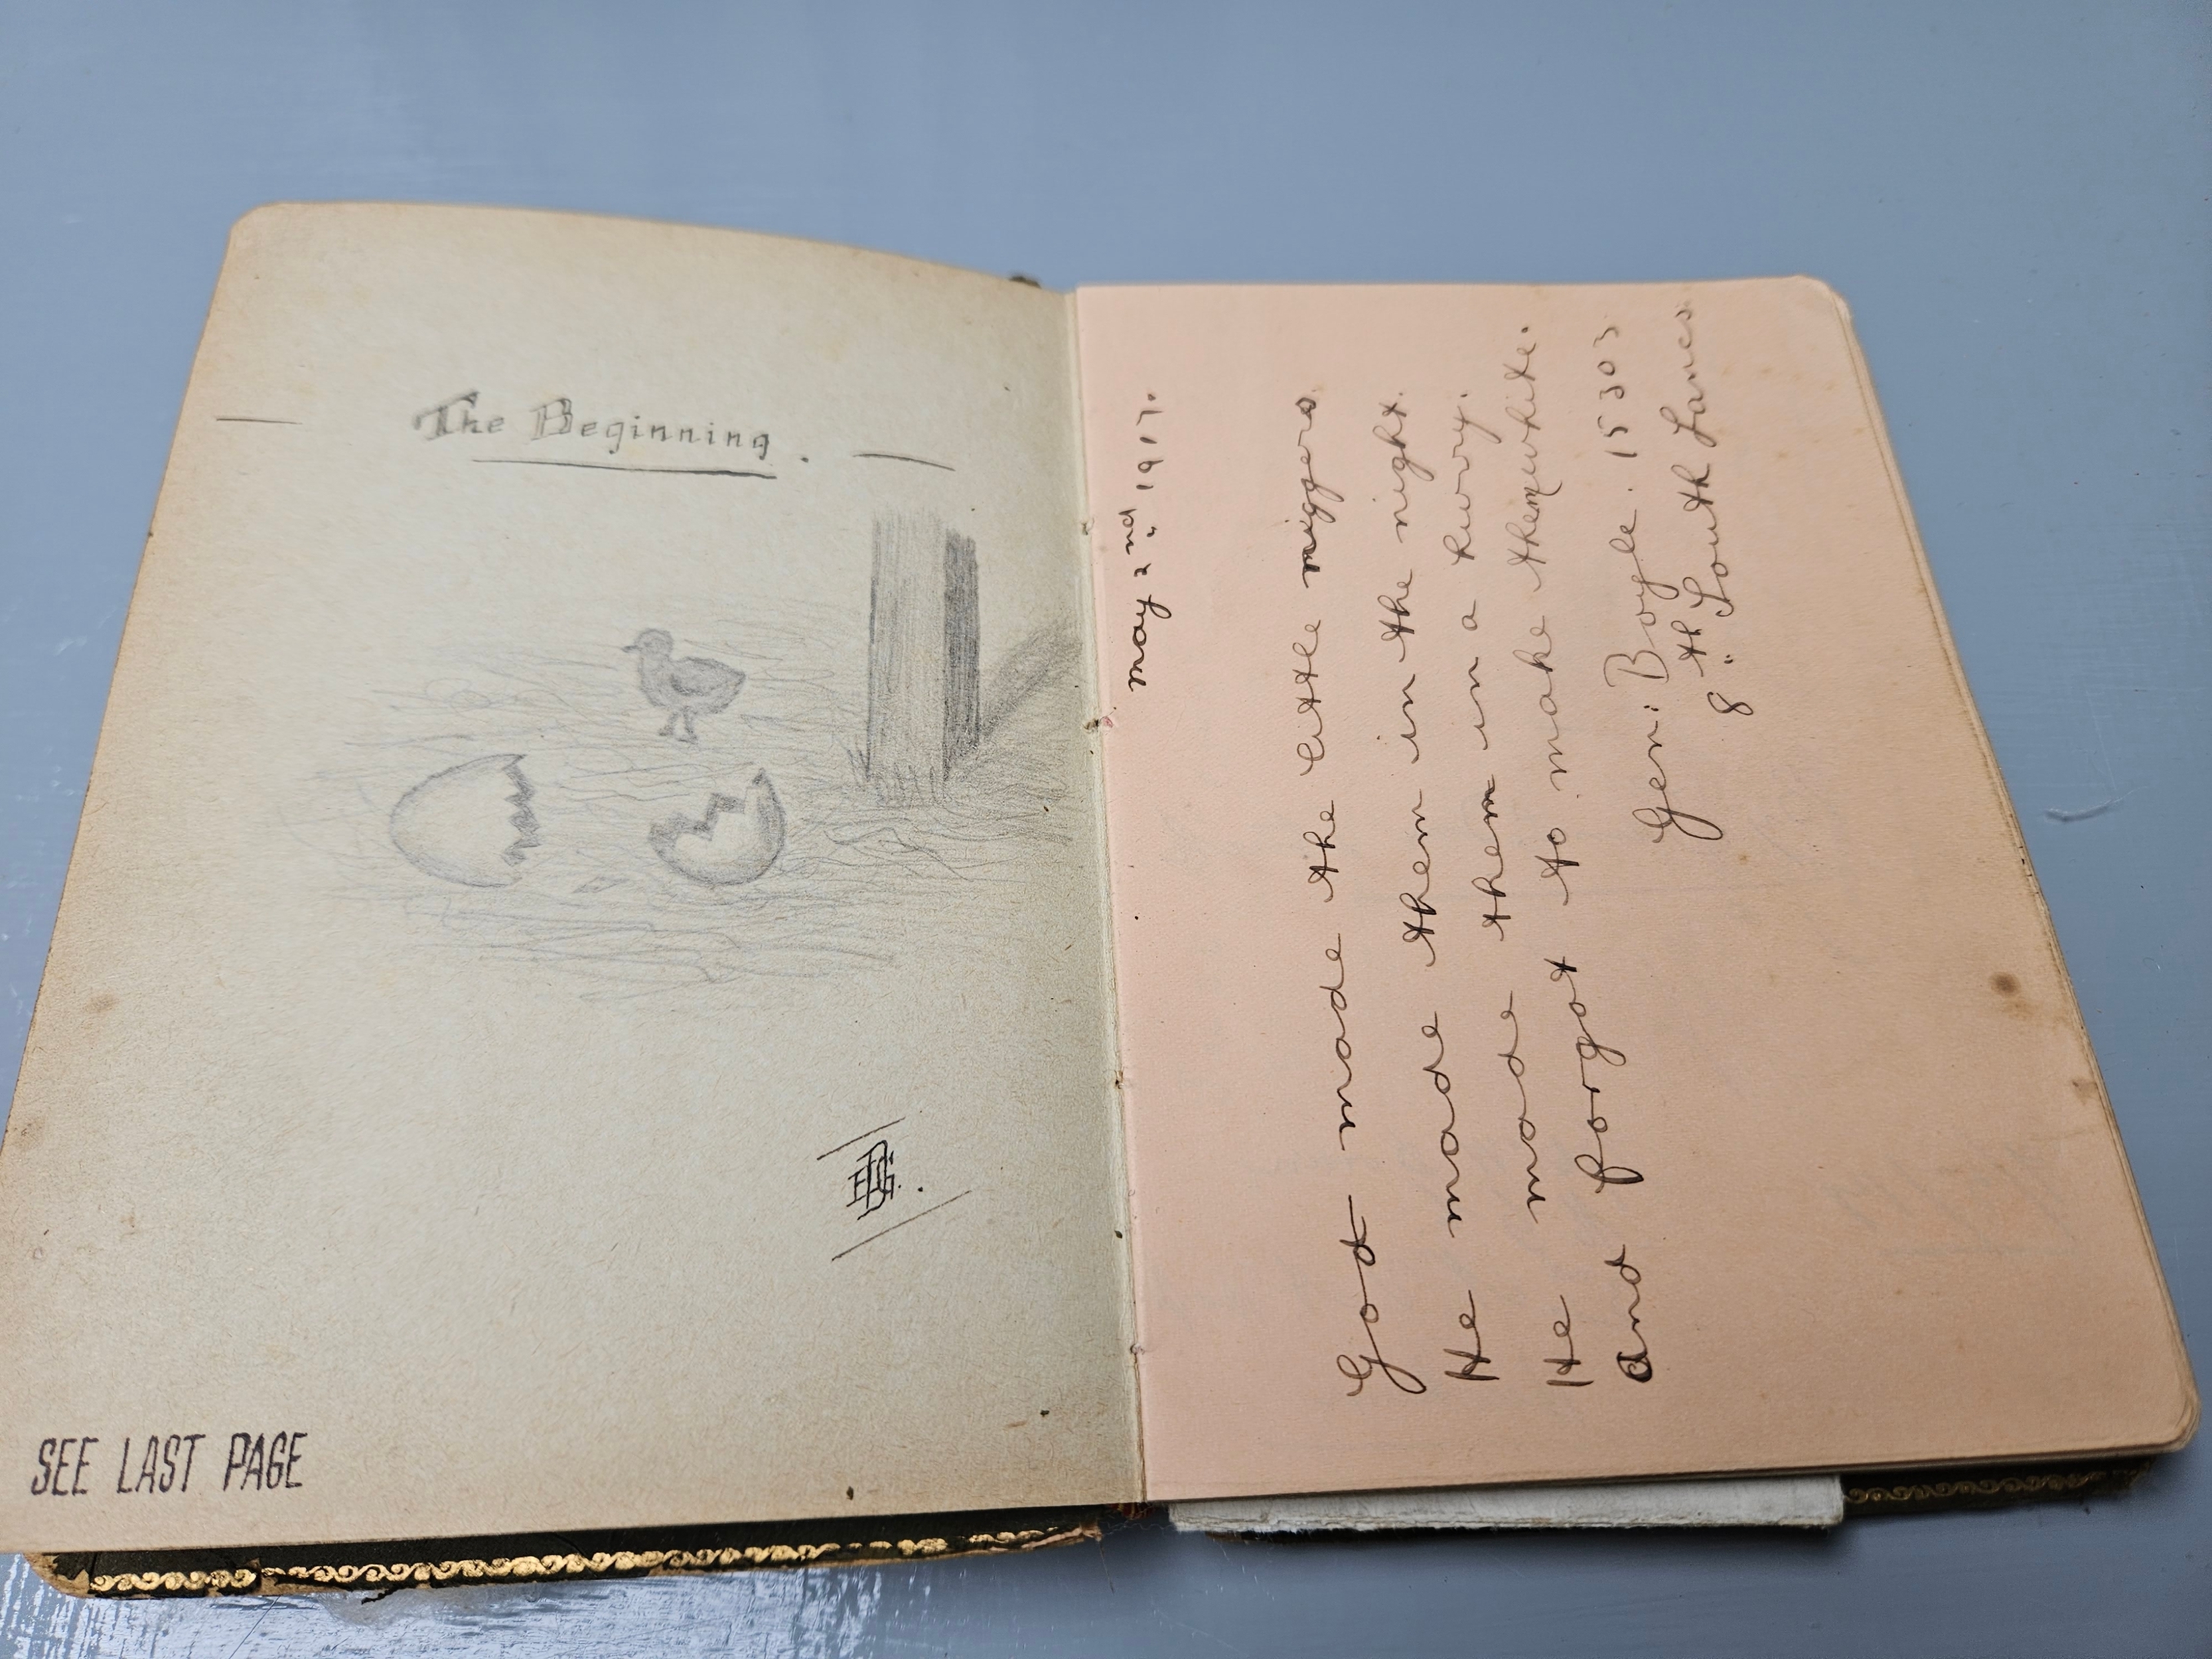 The Beginning.
EBG.
SEE LAST PAGE
May 2nd, 1917.
God made the little niggers
He made them in the night.
He made them in a hurry.
And forgot to make them white.
Gen: Boyle. 15303
8th South Lancs